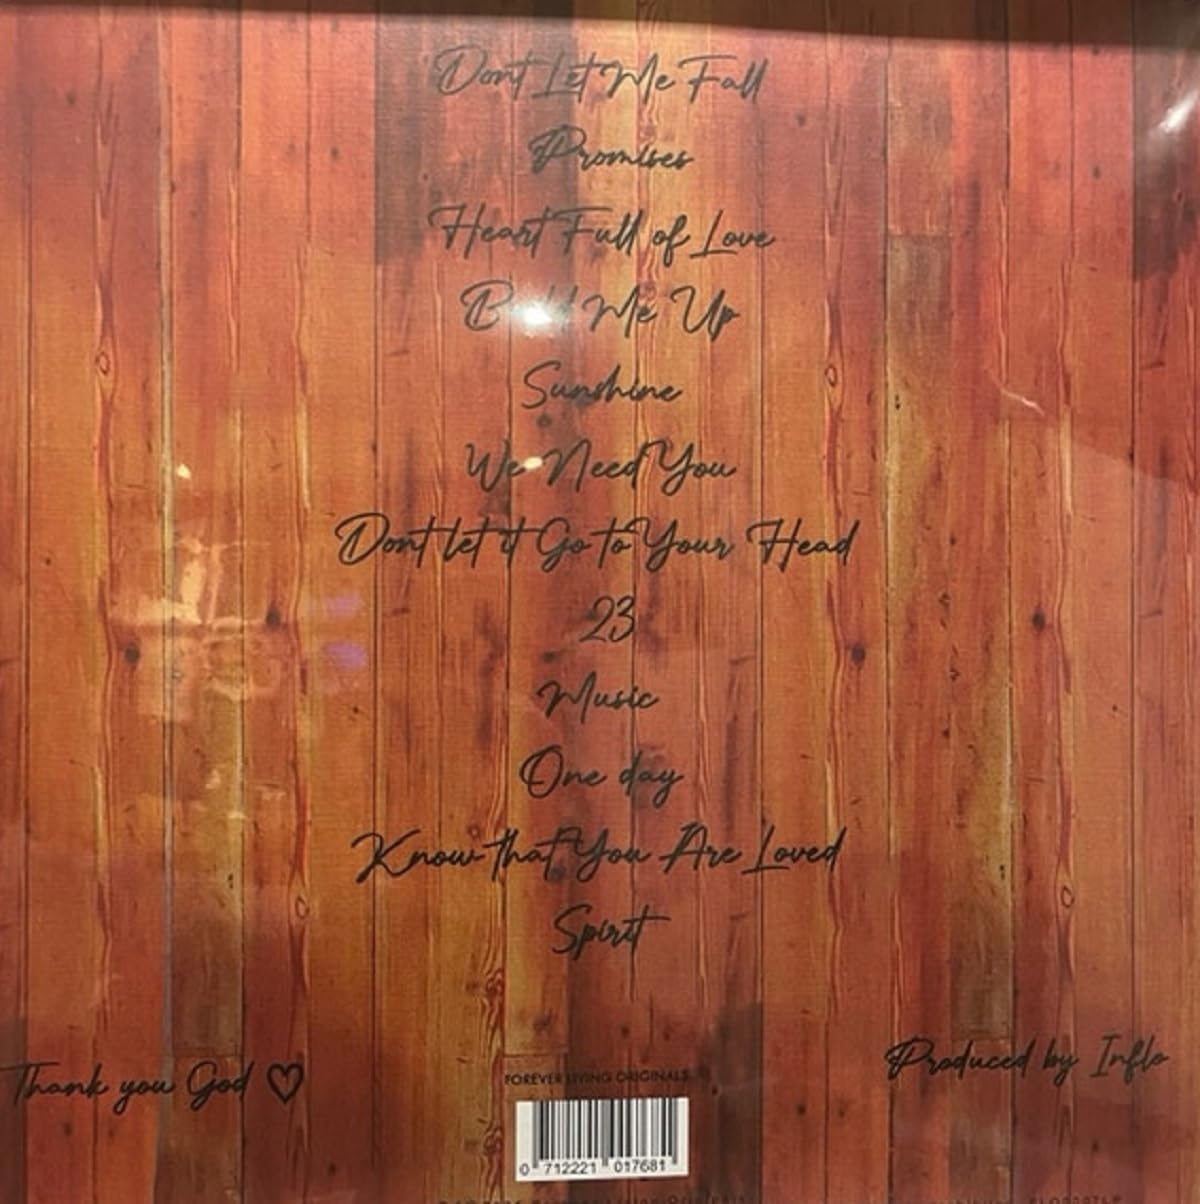 Dont Let Me Fall
Promises
Heart Full of Love
Me Up
Sunshine
We Need You
Dont let it Go to Your Head
23
Music
One day
Know that You Are Loved
Spirit
Thank you God ♡
Produced by Inflo
FOREVER LIVING ORIGINALS
0 712221 017681